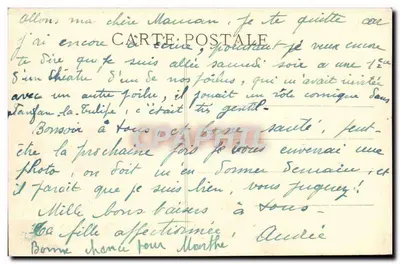 allons ma chère Maman, je te quitte car
j'ai encore à écrire, pourtant je veux encore
CARTE POSTALE
te dire que je suis allée samedi soir a une
d'un théâtre, d'un de nos poilus, qui m'avait invitée
avec un autre poilu, il jouait un rôle comique dans
Fanfan-la-Tulipe, c'était très gentil.
Bonsoir à tous et bonne santé, peut-
être la prochaine fois je vous enverrai une
photo, on doit m'en donner demain, et
il parait que je suis bien, vous jugerez!
Mille bons baisers à tous.
Ta fille affectionnée, Andrée
Bonne chance pour Marthe